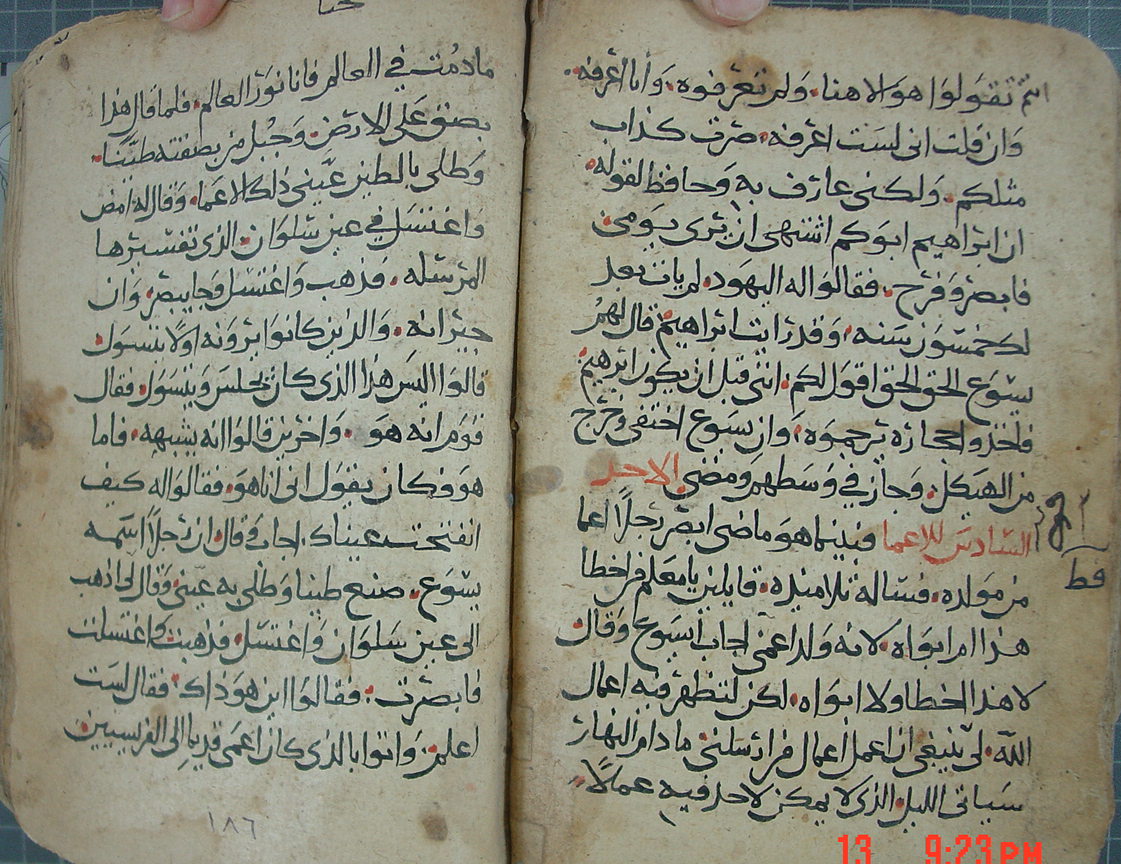 انتم تقولوا هو الاهنا. ولم تعرفوه. وانا اعرفه.
وان قلت اني لست اعرفه. صرت كذاب
مثلكم. ولكني عارف به وحافظ لقوله.
ان ابراهيم ابوكم اشتهى ان يرى يومي.
فابصر وفرح. فقالوا له اليهود. لم يات بعد
لك خمسون سنه. وقد رايت ابراهيم. قال لهم
يسوع الحق الحق اقول لكم. انني قبل ان يكون ابرهيم
فاخذوا حجاره ترجموه. وان يسوع اختفى وخرج
من الهيكل. وجاز في وسطهم ومضى. الاحد
السادس للاعما فبينما هو ماضي ابصر رجلاً اعما
قط
من مولده. فساله تلاميذه. قايلين يا معلم من اخطا
هذا ام ابواه. لانه ولد اعمى اجاب ايسوع وقال
لا هذا اخطا ولا ابواه. لكن لتظهر فيه اعمال
الله. لي ينبغي ان اعمل اعمال من ارسلني. ما دام النهار
سياتي الليل. الذي لا يمكن لاحد فيه عمالاً.
ما دمت في العالم فانا نور العالم. فلما قال هذا
بصق على الارض. وجبل من بصقته طيناً.
وطلى بالطين عيني ذلك الاعما. وقال له امض
واغتسل في عين سلوان. الذي تفسيرها
المرسله. فذهب واغتسل وجا يبصر. وان
جيرانه. والذين كانوا يرونه اولاً يتسول
قالوا اليس هذا الذي كان يجلس ويتسول. فقال
قوم انه هو. واخرين قالوا انه يشبهه. فاما
هو فكان يقول اني انا هو. فقالوا له كيف
انفتحت عيناك. اجاب وقال. ان رجلاً اسمه
يسوع. صنع طينا وطلى به عيني. وقال لي اذهب
الى عين سلوان واغتسل. فذهبت واغتسلت
فابصرت. فقالوا اين هو ذاك. فقال لست
اعلم. واتوا بالذي كان اعمى قديما الى الفريسيين
١٨٦
13 9:23 PM